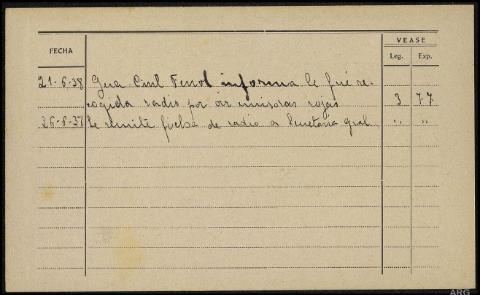 VEASE
FECHA
Leg. Exp.
21-6-38 Gua Civil Ferrol informa le fué re-
cogida radio por oir emisoras rojas 3 77
26-6-37 Se remite ficha de radio a Secretaria gral. " "
ARG